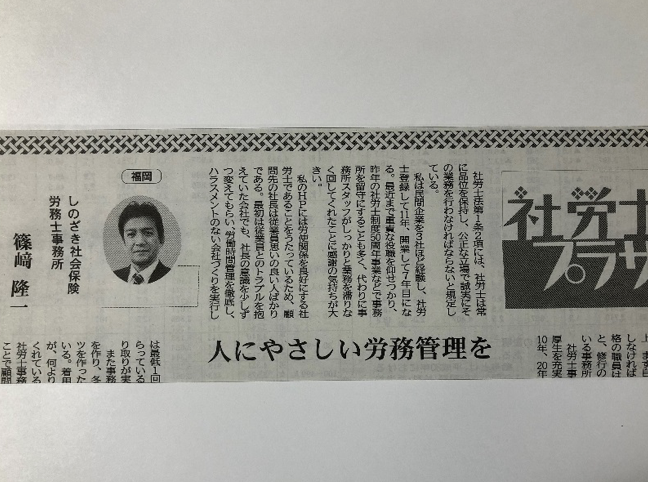 社労士
プラザ
社労士法第1条の2項には、社労士は常
に品位を保持し、公正な立場で誠実にそ
の業務を行わなければならないと規定し
ている。
私は民間企業を3社ほど経験し、社労
士登録して11年、開業して7年目にな
る。最近まで重責な役職を仰せつかり、
昨年の社労士制度50周年事業などで事務
所を留守にすることも多く、代わりに事
務所スタッフがしっかりと業務を滞りな
く回してくれたことに感謝の気持ちが大
きい。
私のHPには労使関係を良好にする社
労士であることをうたっているため、顧
問先の社長は従業員思いの良い人ばかり
である。最初は従業員とのトラブルを抱
えていた会社でも、社長の意識を少しず
つ変えてもらい、労働時間管理を徹底し、
ハラスメントのない会社づくりを実行し
福岡
しのざき社会保険
労務士事務所
篠﨑 隆一
人にやさしい労務管理を
しなければ
格の職員は
と、修行の
いる事務所
社労士事
厚生を充実
10年、20年
は最低1回
らっている
り取りが実
また事務
を作り、冬
ツを作った
いる。着用
が、何より
くれている
社労士事
ことで顧問